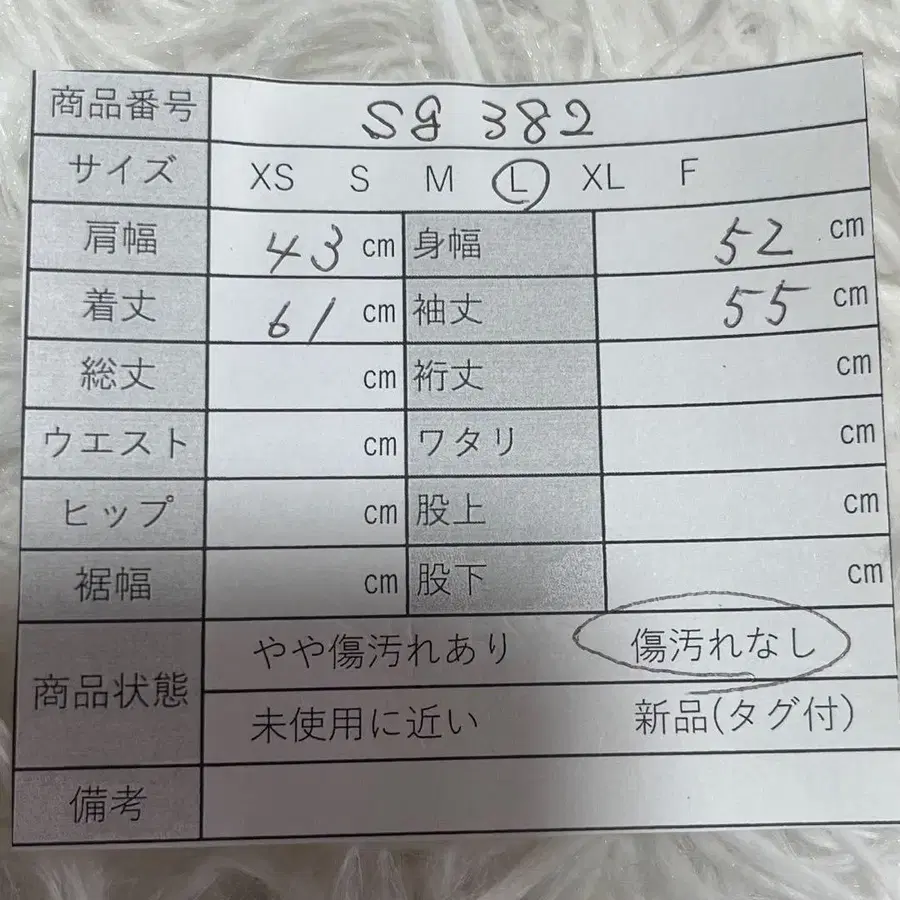 商品番号 SG 382
サイズ XS S M L XL F
肩幅 43 cm 身幅 52 cm
着丈 61 cm 袖丈 55 cm
総丈 cm 裄丈 cm
ウエスト cm ワタリ cm
ヒップ cm 股上 cm
裾幅 cm 股下 cm
商品状態 やや傷汚れあり 傷汚れなし
未使用に近い 新品(タグ付)
備考